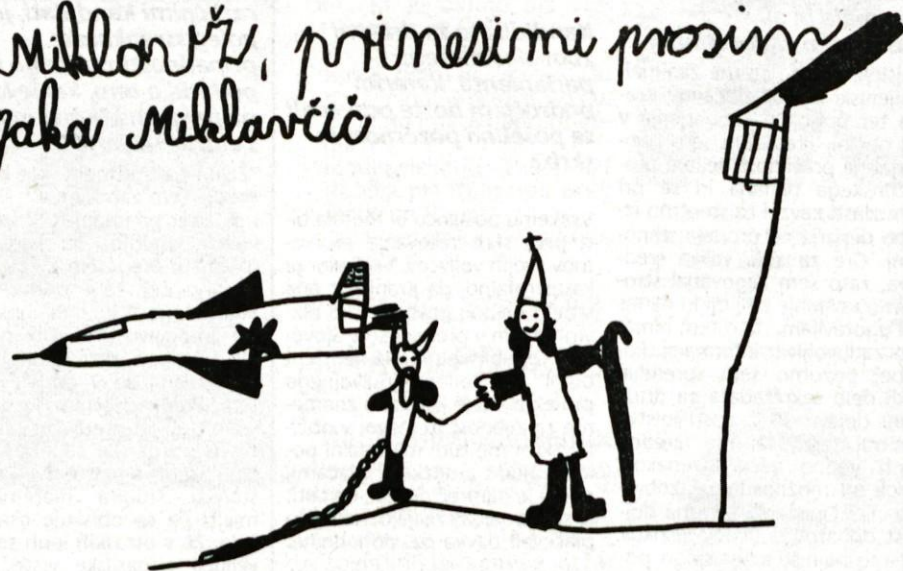 Miklavž, prinesimi prosim
Jaka Miklavčič